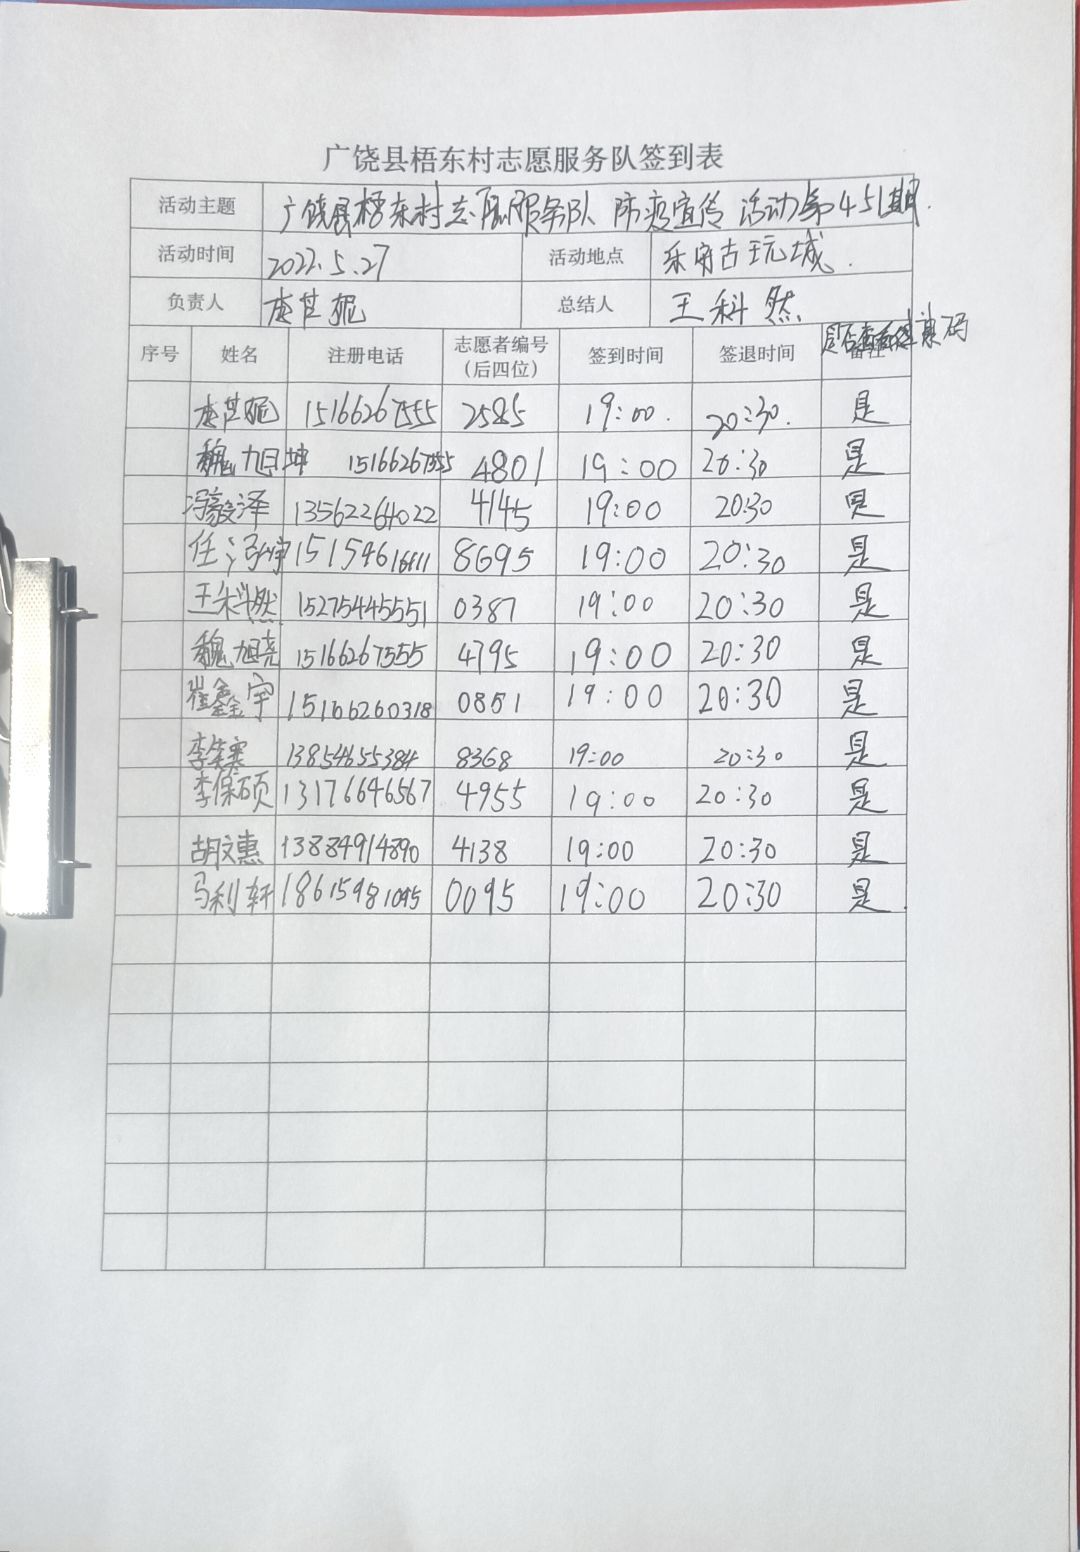 广饶县梧东村志愿服务队签到表
活动主题 广饶县梧东村志愿服务队 防疫宣传 活动第451期.
活动时间 2022.5.27 活动地点 乐安古玩城.
负责人 总结人 王科然
序号 姓名 注册电话 志愿者编号（后四位） 签到时间 签退时间 备注 是否 康码
15166267555 2585 19:00. 20:30. 是
魏旭坤 15166267555 4801 19:00 20:30 是
冯毅泽 13562264022 4145 19:00 20:30 是
任 15154616411 8695 19:00 20:30 是
王科然 15275445551 0387 19:00 20:30 是
魏旭尧 15166267555 4795 19:00 20:30 是
崔鑫宇 15166260318 0851 19:00 20:30 是
李 13854655384 8368 19:00 20:30 是
李保硕 13176646567 4955 19:00 20:30 是
胡文惠 13884914890 4138 19:00 20:30 是
马利轩 18615981095 0095 19:00 20:30 是.